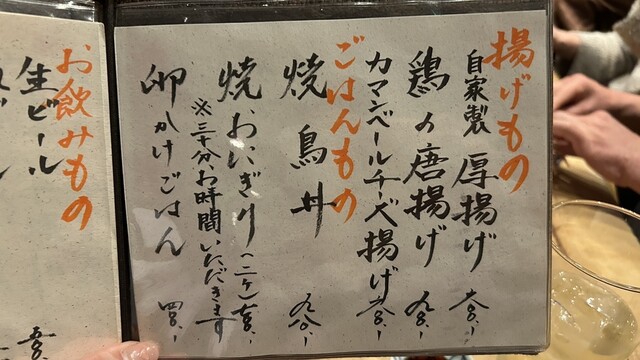 揚げもの
自家製 厚揚げ 六〇〇.-
鶏の唐揚げ
カマンベールチーズ揚げ 六〇〇.-
ごはんもの
焼鳥丼 九八〇.-
焼おにぎり(二ケ)
※三十分、お時間いただきます
卵かけごはん 四〇〇.-
お飲みもの
生ビール